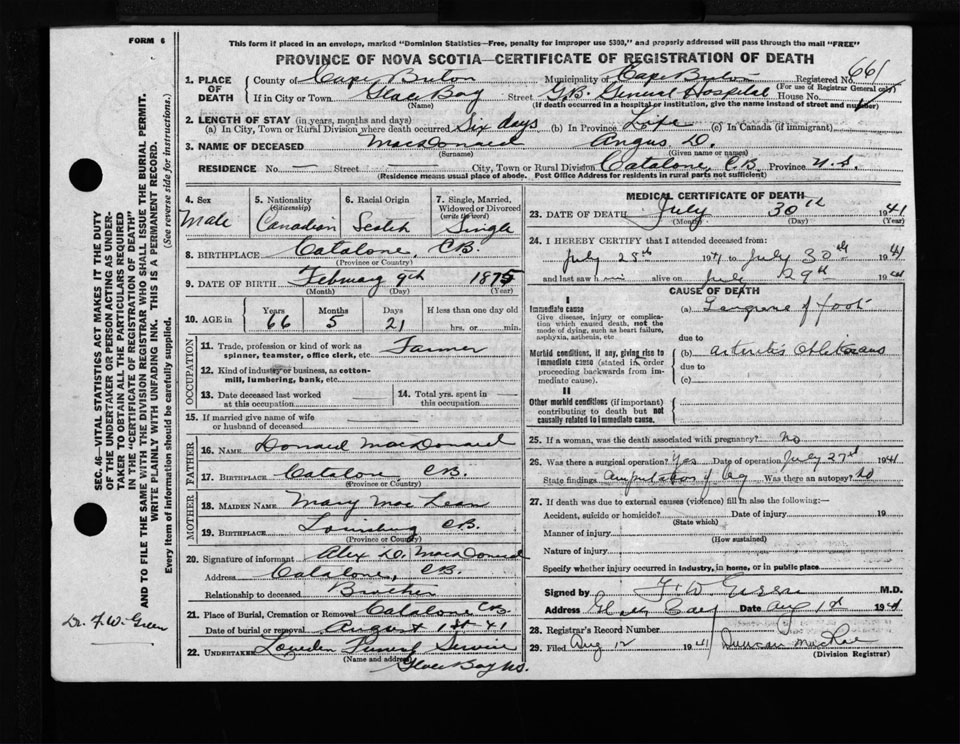 FORM 6
This form if placed in an envelope, marked "Dominion Statistics—Free, penalty for improper use $300," and properly addressed will pass through the mail "FREE"
PROVINCE OF NOVA SCOTIA—CERTIFICATE OF REGISTRATION OF DEATH
1. PLACE OF DEATH
County of Cape Breton Municipality of Cape Breton Registered No. 661
(For use of Registrar General only)
If in City or Town Glace Bay Street G.B. General Hospital House No.
(Name) (If death occurred in a hospital or institution, give the name instead of street and number)
2. LENGTH OF STAY (in years, months and days)
(a) In City, Town or Rural Division where death occurred Six days (b) In Province Life (c) In Canada (if immigrant)
3. NAME OF DECEASED MacDonald Angus D.
(Surname) (Given name or names)
RESIDENCE No. — Street City, Town or Rural Division Catalone, C.B. Province N.S.
(Residence means usual place of abode. Post Office Address for residents in rural parts not sufficient)
4. Sex
Male
5. Nationality
(Citizenship)
Canadian
6. Racial Origin
Scotch
7. Single, Married, Widowed or Divorced
(write the word)
Single
8. BIRTHPLACE Catalone, CB
(Province or Country)
9. DATE OF BIRTH February 9th 1875
(Month) (Day) (Year)
10. AGE in
Years Months Days If less than one day old
66 5 21 hrs. or min.
OCCUPATION
11. Trade, profession or kind of work as spinner, teamster, office clerk, etc. Farmer
12. Kind of industry or business, as cotton-mill, lumbering, bank, etc.
13. Date deceased last worked at this occupation
14. Total yrs. spent in this occupation
15. If married give name of wife or husband of deceased
FATHER
16. NAME Donald MacDonald
17. BIRTHPLACE Catalone CB.
(Province or Country)
MOTHER
18. MAIDEN NAME Mary MacLean
19. BIRTHPLACE Louisburg CB.
(Province or Country)
20. Signature of informant Alex D. MacDonald
Address Catalone, CB.
Relationship to deceased Brother
21. Place of Burial, Cremation or Removal Catalone CB
Date of burial or removal August 1st-41
22. UNDERTAKER Funeral Service
(Name and address) Glace Bay NS.
MEDICAL CERTIFICATE OF DEATH
23. DATE OF DEATH July 30th 1941
(Month) (Day) (Year)
24. I HEREBY CERTIFY that I attended deceased from:
July 25th 1941 to July 30th 1941
and last saw him alive on July 29th 1941
CAUSE OF DEATH
I
Immediate cause
Give disease, injury or complication which caused death, not the mode of dying, such as heart failure, asphyxia, asthenia, etc.
(a) Gangrene of foot
due to
Morbid conditions, if any, giving rise to immediate cause (stated in order proceeding backwards from immediate cause).
(b) arteritis Obliterans
due to
(c)
II
Other morbid conditions (if important) contributing to death but not causally related to immediate cause.
25. If a woman, was the death associated with pregnancy? No
26. Was there a surgical operation? Yes Date of operation July 27th 1941
State findings Amputation of leg Was there an autopsy? No
27. If death was due to external causes (violence) fill in also the following:—
Accident, suicide or homicide? Date of injury 19
(State which)
Manner of injury
(How sustained)
Nature of injury
Specify whether injury occurred in industry, in home, or in public place
Signed by F. W. Green M.D.
Address Glace Bay Date Aug 1st 1941
28. Registrar's Record Number
29. Filed Aug 12 1941 Duncan MacRae
(Division Registrar)
SEC. 46—VITAL STATISTICS ACT MAKES IT THE DUTY
OF THE UNDERTAKER OR PERSON ACTING AS UNDER-
TAKER TO OBTAIN ALL THE PARTICULARS REQUIRED
IN THE "CERTIFICATE OF REGISTRATION OF DEATH"
AND TO FILE THE SAME WITH THE DIVISION REGISTRAR WHO SHALL ISSUE THE BURIAL PERMIT.
WRITE PLAINLY WITH UNFADING INK. THIS IS A PERMANENT RECORD.
Every item of information should be carefully supplied. (See reverse side for instructions.)
Dr. F. W. Green